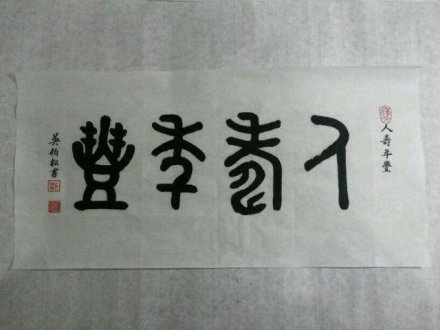 人壽年豐
人壽年豐
柏松書